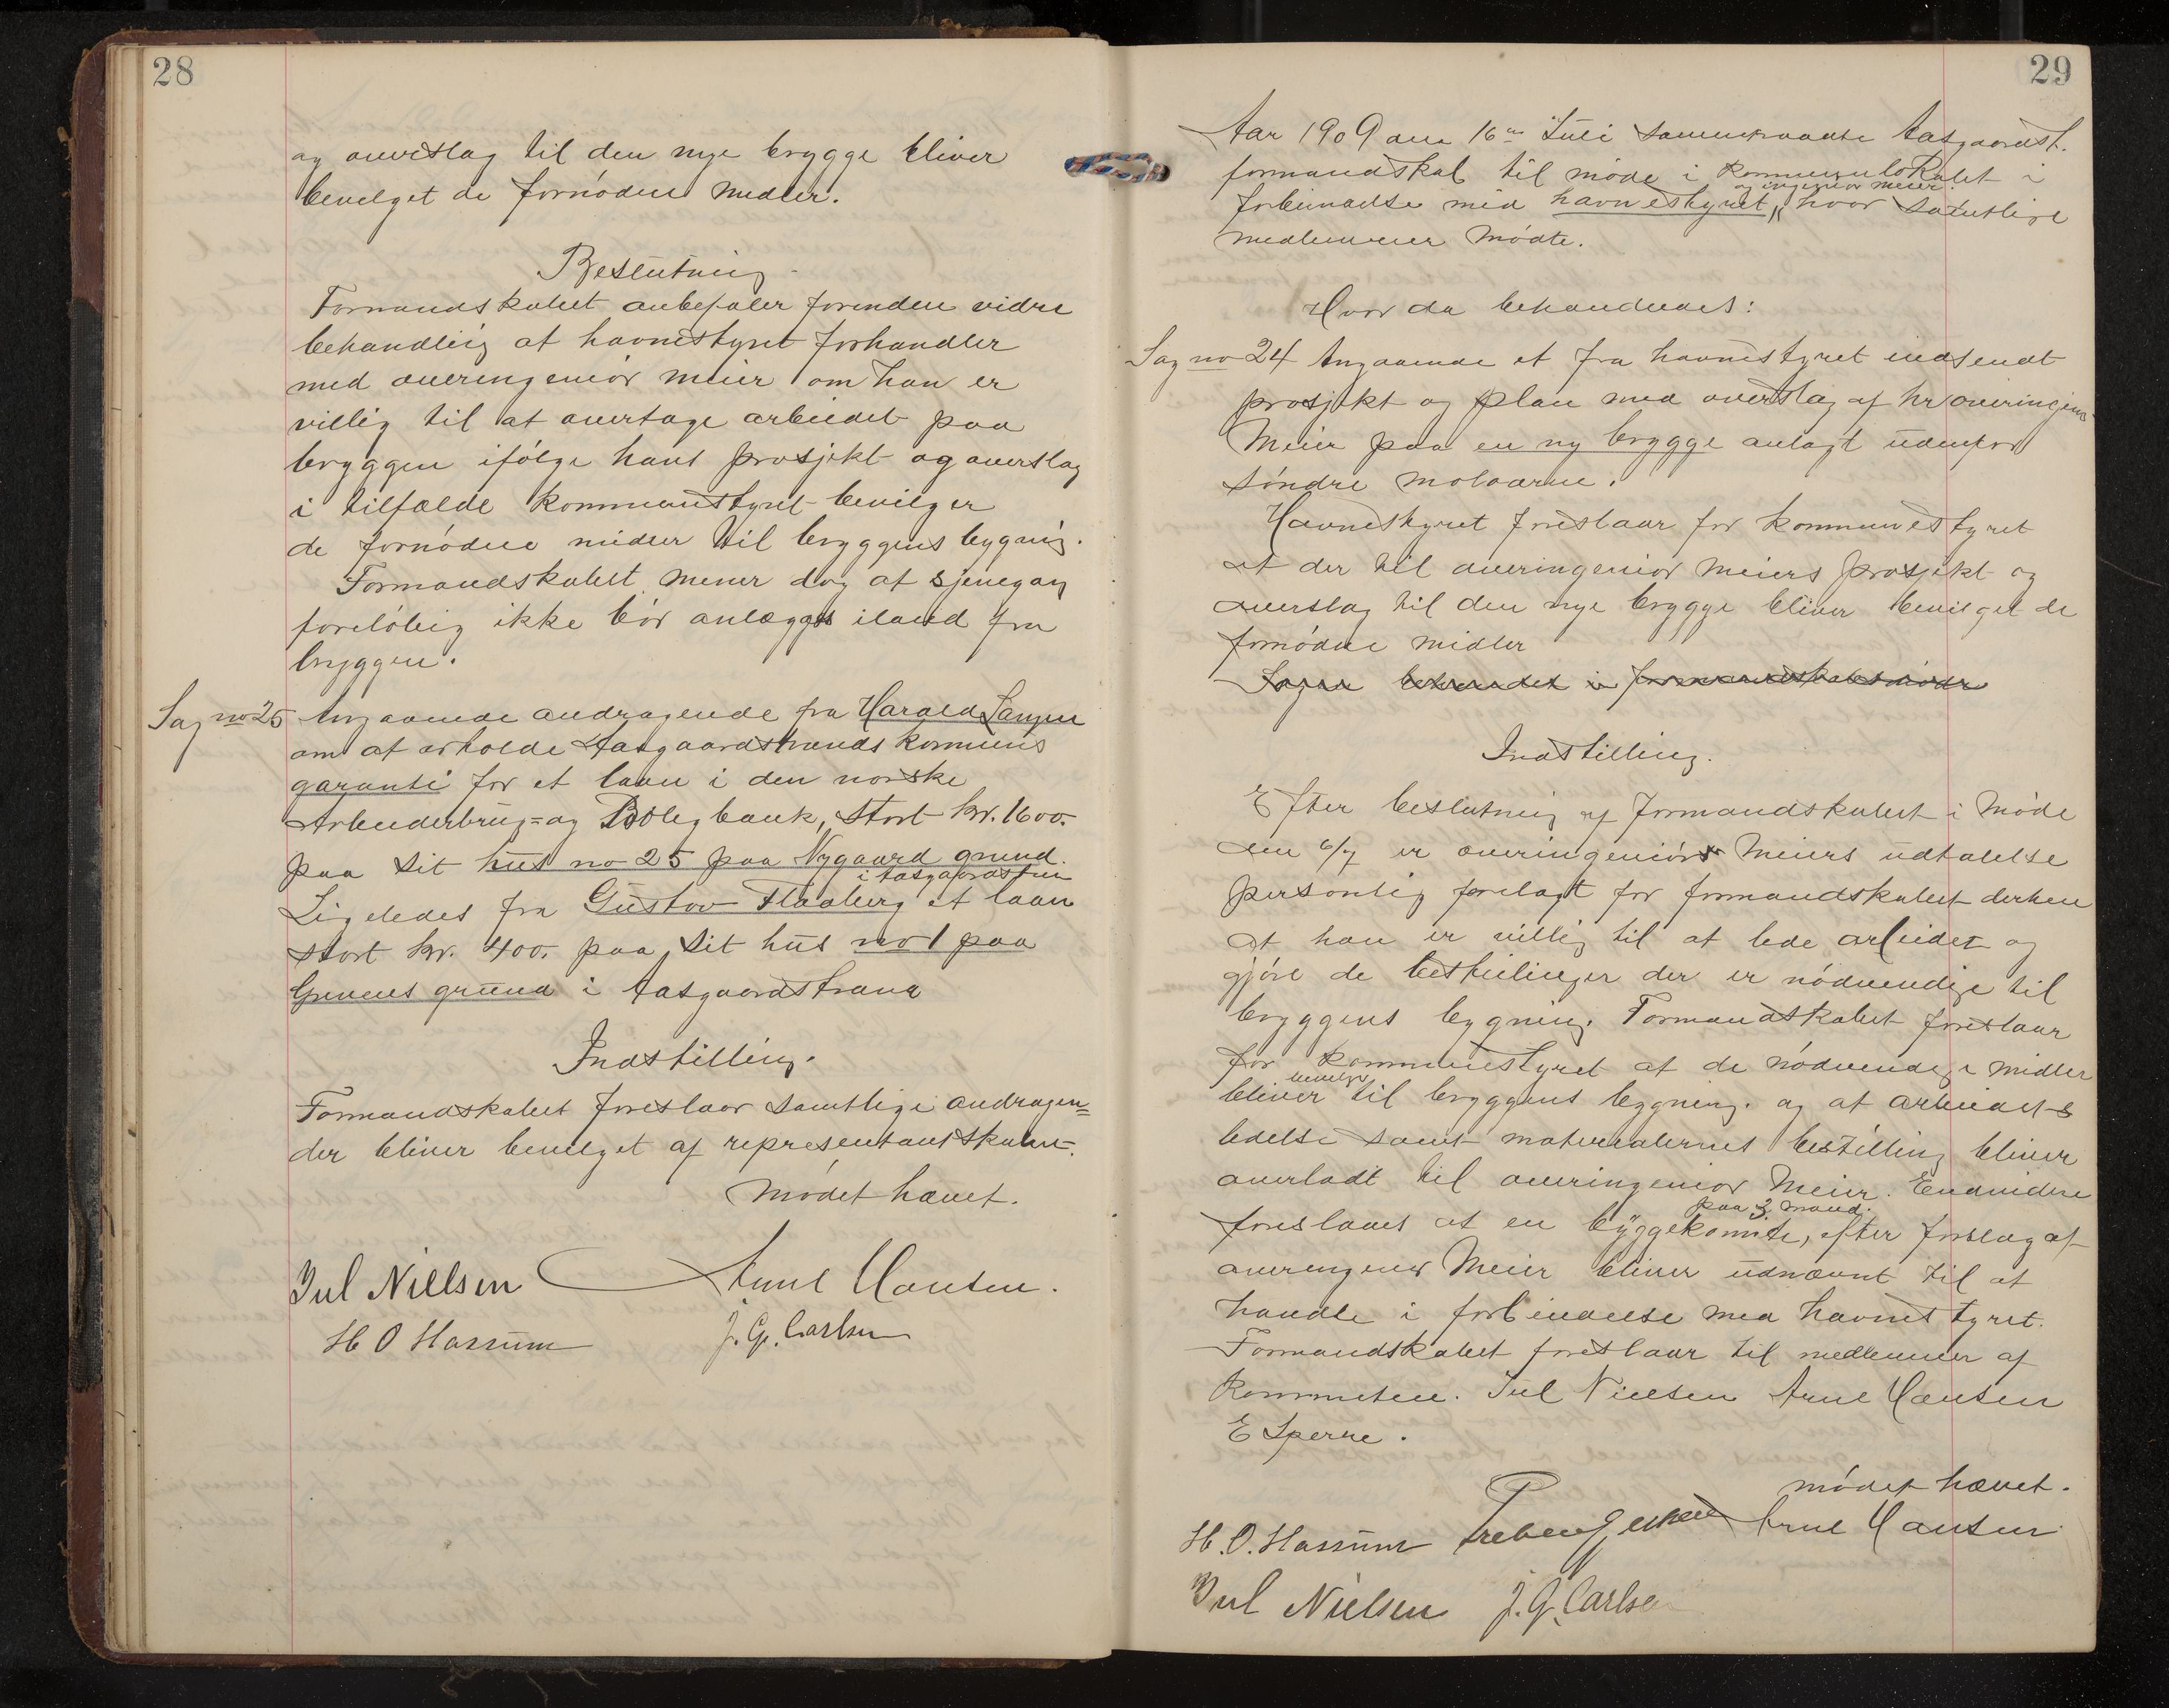 28
og overslag til den nye brygge bliver
bevelget de fornødne midler.
Beslutning
Formandskabet anbefaler forinden vidre
behandling at havnestyret forhandler
med overingeniør Meier om han er
villig til at overtage arbeidet paa
bryggen ifølge hans prosjekt og overslag
i tilfælde kommunestyret bevilger
de fornødne midler til bryggens bygning.
Formandskabet mener dog at sjenegang
foreløbig ikke bør anlægges iland fra
bryggen.
Sag no 25 Angaaende andragende fra Harald Langen
om at erholde Aasgaardstrands kommunes
garanti for et laan i den norske
Arbeiderbrug= og Boligbank, stort kr. 1600.
paa sit hus no 25 paa Nygaard grund.
i Aasgaardstran
Ligeledes fra Gustav Fladberg et laan
stort kr. 400. paa sit hus no 1 paa
Grevens grund i Aasgaardstrand
Indstilling.
Formandskabet foreslaar samtlige andragen=
der bliver bevelget af representantskabet.
Mødet hævet.
Jul Nielsen Arne Hansen.
H O Hassum J. G. Carlsen
29
Aar 1909 den 16de Juli sammentraadte Aasgaardst.
formandskab til møde i kommunelokalet i
og ingeniør Meier
forbindelse med havnestyret, hvor samtlige
medlemmer mødte.
Hvor da behandledes:
Sag no 24 Angaaende et fra havnestyret indsendt
prosjekt og plan med overslag af hr overingeniør
Meier paa en ny brygge anlagt udenfor
søndre moloarm.
Havnestyret foreslaar for kommunestyret
at der til overingeniør Meiers prosjekt og
overslag til den nye brygge bliver bevilget de
fornødne midler
Sagen behandlet i formandskabsmøde
Indstilling.
Efter beslutning af formandskabet i møde
den 6/7 er overingeniør Meiers udtalelse
personlig forelagt for formandskabet derhen
at han er villig til at lede arbeidet og
gjøre de bestillinger der er nødvendige til
bryggens bygning. Formandskabet foreslaar
for kommunestyret at de nødvendige midler
bevilget
bliver til bryggens bygning. og at arbeidets
ledelse samt materialernes bestilling bliver
overladt til overingeniør Meier. Endvidere
paa 3 mand.
foreslaaes at en byggekomite, efter forslag af
overingeniør Meier bliver udnævnt til at
handle i forbindelse med havnestyret.
Formandskabet foreslaar til medlemmer af
kommiteen. Jul Nielsen Arne Hansen
E Sperre.
mødet hævet.
H. O. Hassum Arne Hansen
Jul Nielsen J. G. Carlsen